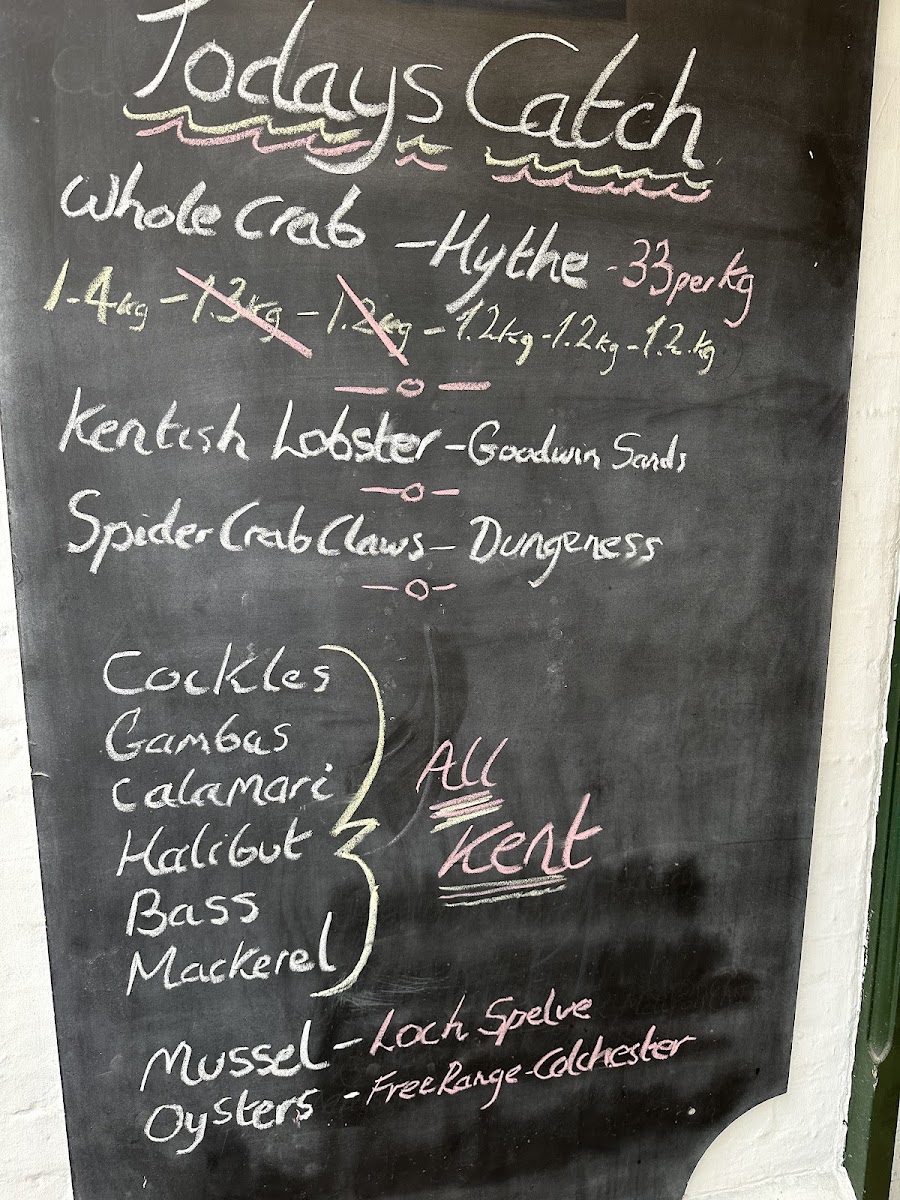 Todays Catch
Whole Crab - Hythe - 33 per kg
1.4kg - 1.3kg - 1.2kg - 1.2kg - 1.2kg - 1.2kg
Kentish Lobster - Goodwin Sands
Spider Crab Claws - Dungeness
Cockles
Gambas
Calamari
Halibut
Bass
Mackerel
All
Kent
Mussel - Loch Spelve
Oysters - Free Range - Colchester